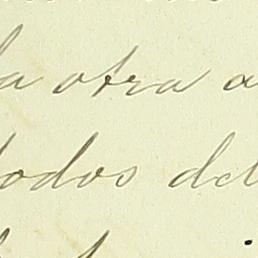 la otra a
todos del